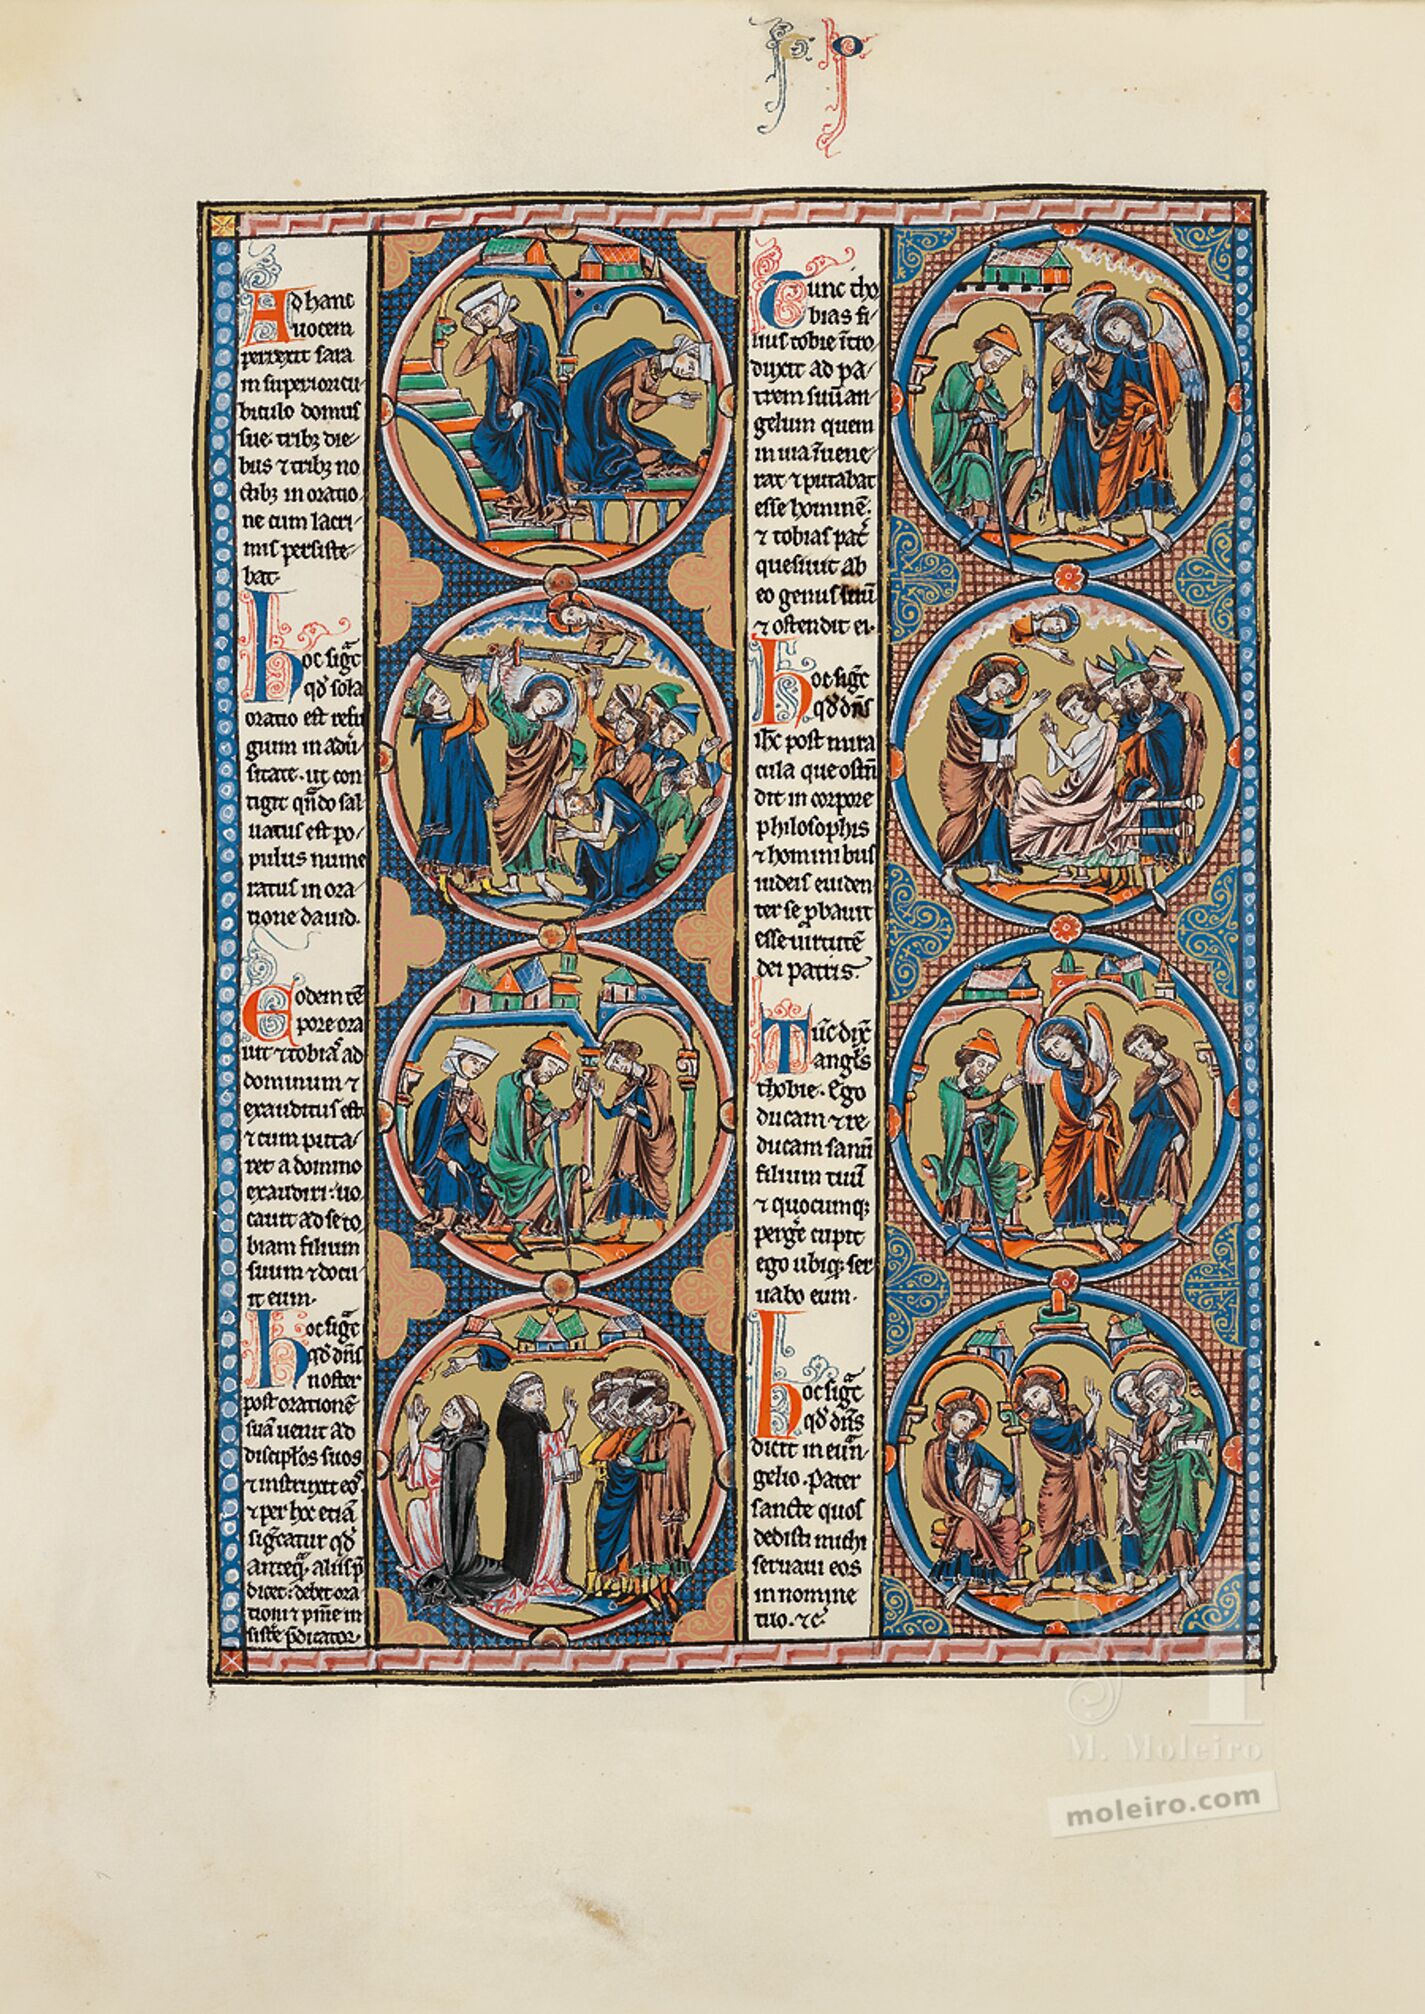 Ad hanc
uocem
perrexit sara
in superiori cu
biculo domus
sue. tribz die
bus ⁊ tribz no
ctibz in oratio
ne cum lacri
mis persiste
bat.
hoc sigͣt
qđ sola
oratio est refu
gium in adũ
sitate. ut con
tigit qñdo sal
uatus est po
pulus nume
ratus in ora
tione dauid.
Eodem tẽ
pore ora
uit ⁊ tobias ad
dominum ⁊
exauditus est
⁊ cum puta
ret a domino
exaudiri: uo
cauit ad se to
biam filium
suum ⁊ docu
it eum.
hoc sigͣt
qđ dñs
noster
post orationẽ
suã uenit ad
discipl̃os suos
⁊ instruxit eos
⁊ per hoc etiã
sigͣcatur qđ
anteqͣ aliis p̃
dicet: debet ora
tioni ⁊ p̃me in
sistẽ p̃dicator.
Tunc tho
bias fi
lius tobie ĩtro
duxit ad pa
trem suũ an
gelum quem
in uia ĩuene
rat ⁊ putabat
esse hominẽ:
⁊ tobias pat̃
quesiuit ab
eo genus suũ
⁊ ostendit ei.
hoc sigͣt
qđ dñs
ihc post mira
cula que ostñ
dit in corpore
philosophis
⁊ hominibus
iudeis euiden
ter se ꝓbauit
esse uirtutẽ
dei patris.
Tũc dix̃
angl̃s
thobie. Ego
ducam ⁊ re
ducam sanũ
filium tuũ
⁊ quocumqꝫ
perge᷑ cupit
ego ubiqꝫ ser
uabo eum.
hoc sigͣt
qđ dñs
dicit in euͣn
gelio. Pater
sancte quos
dedisti michi
seruaui eos
in nomine
tuo. ⁊c̃
M. Moleiro
moleiro.com